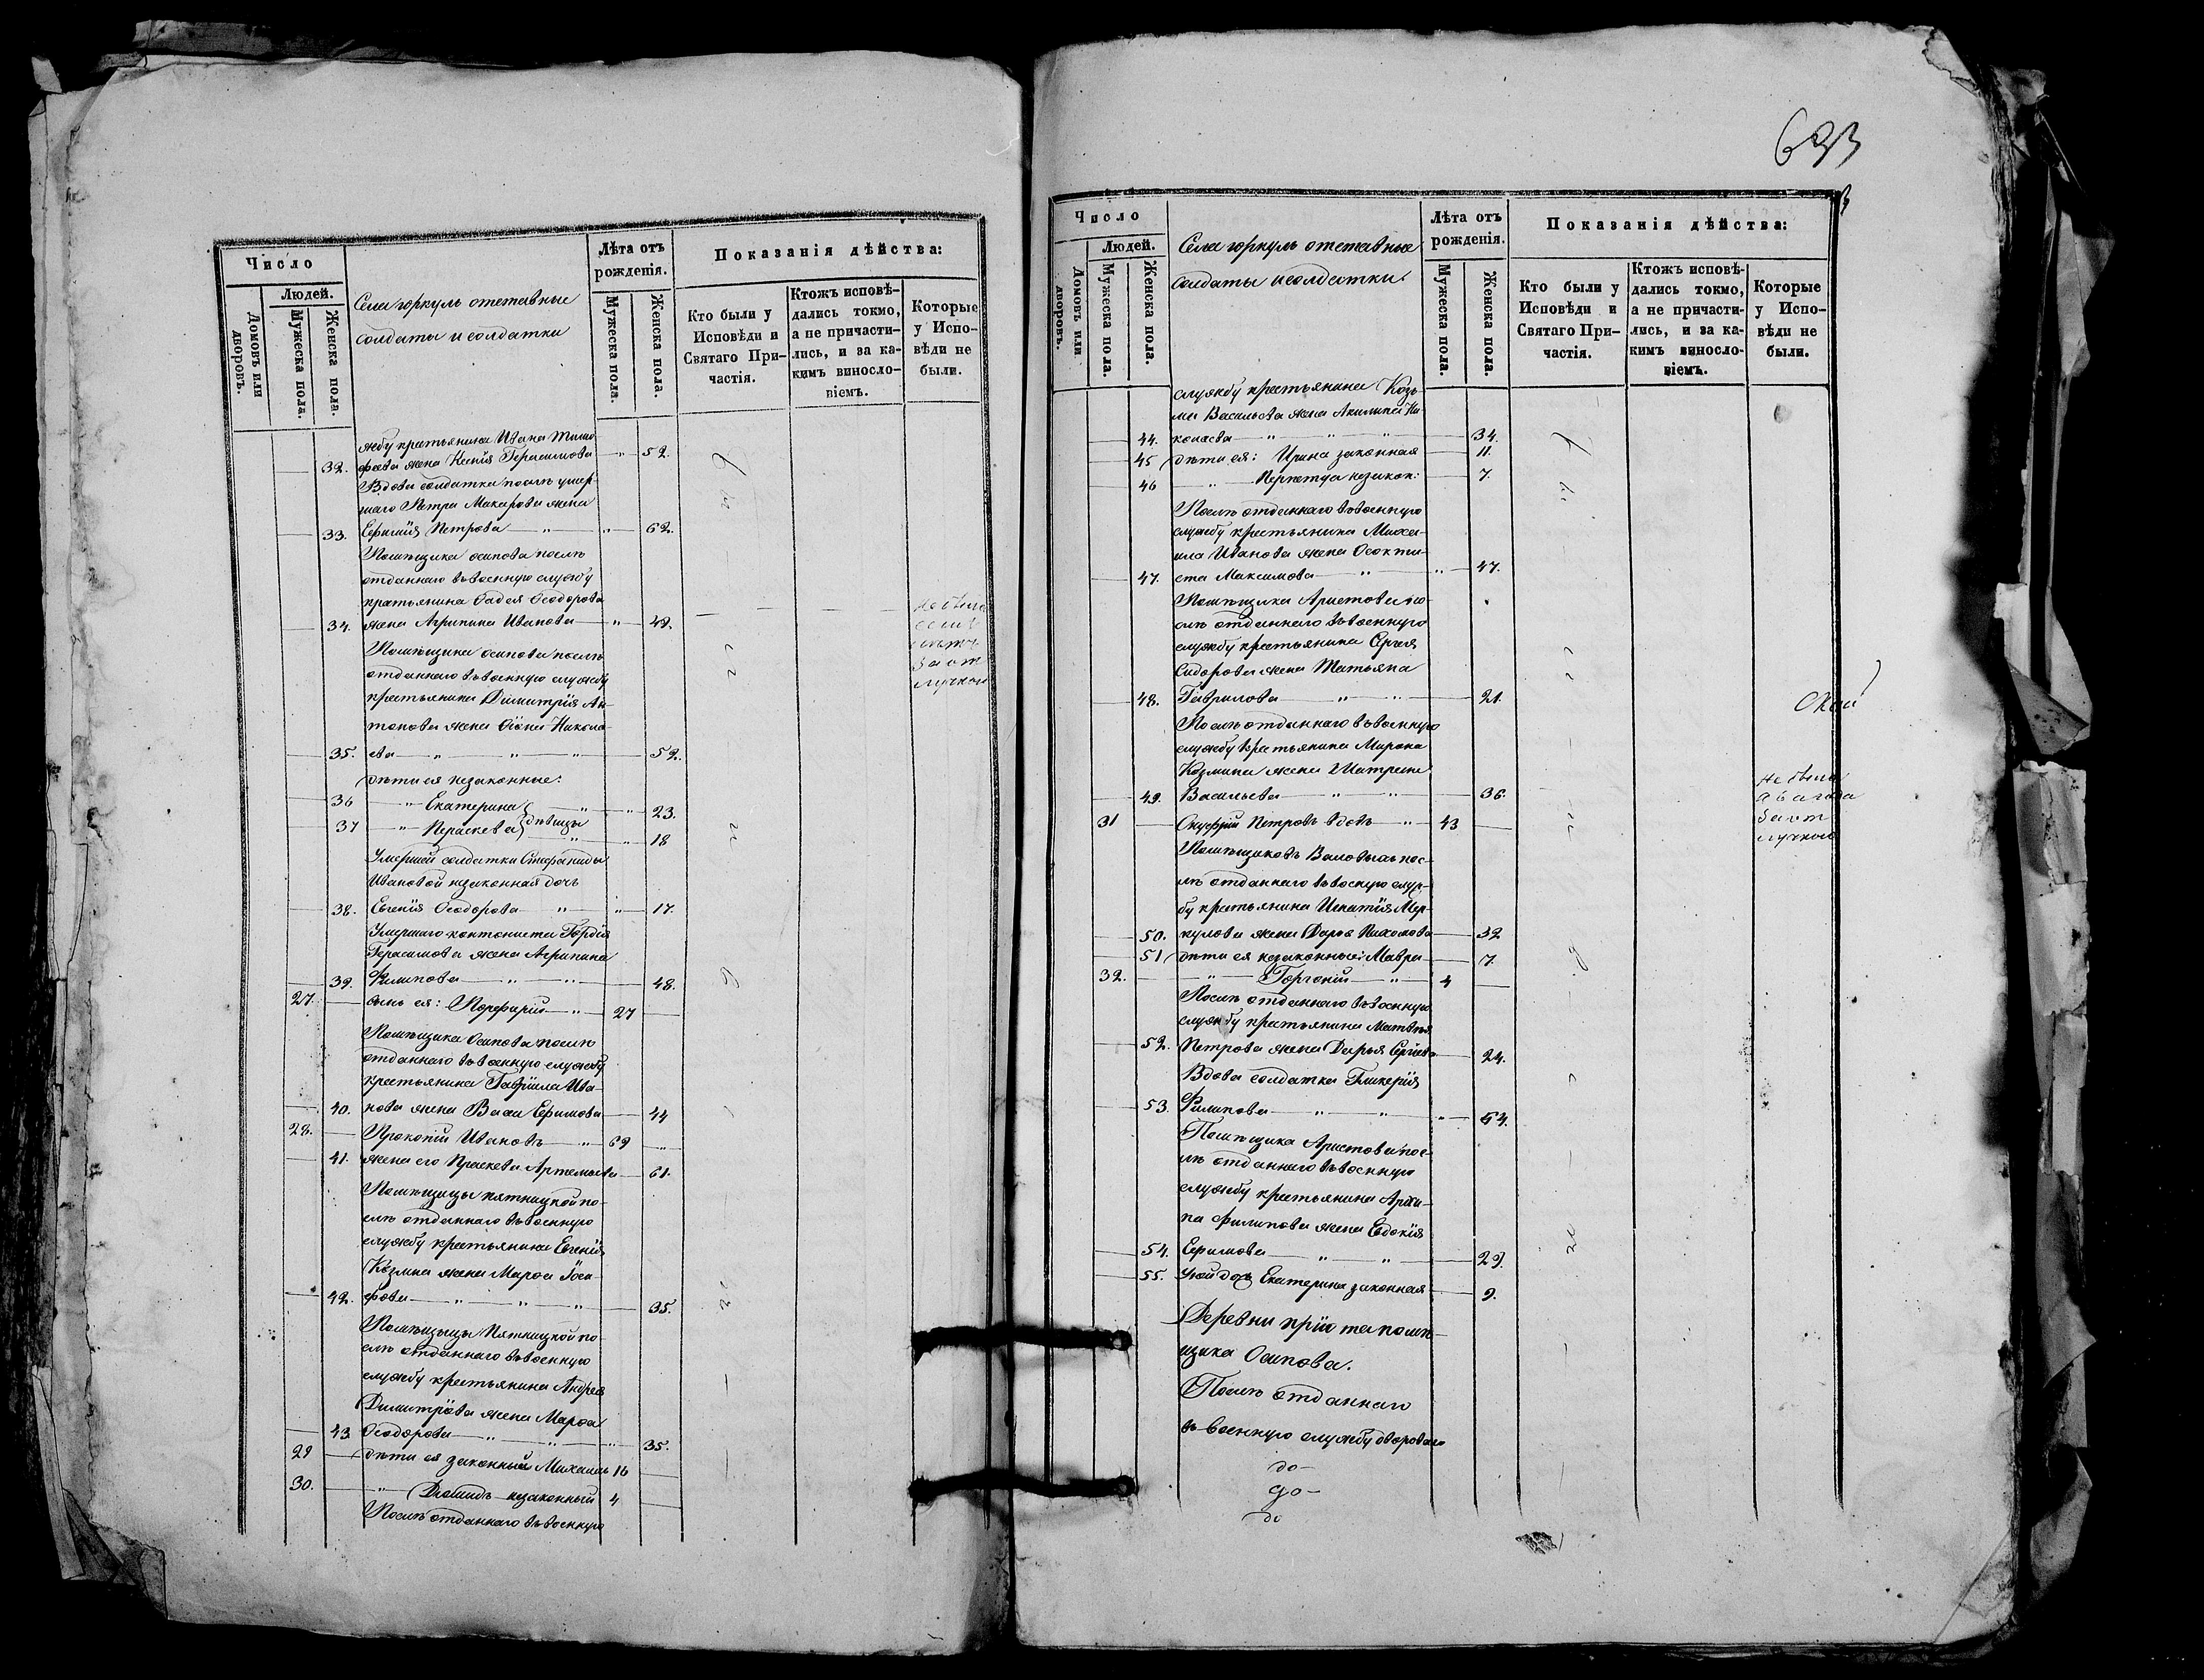 Число
Людей.
Домовъ или дворовъ.
Мужеска пола.
Женска пола.
Села юркуль отставные
солдаты и солдатки
Лѣта отъ рожденія.
Мужеска пола.
Женска пола.
Показанія дѣйства:
Кто были у Исповѣди и Святаго Причастія.
Ктожъ исповѣдались токмо, а не причастились, и за какимъ винословіемъ.
Которые у Исповѣди не были.
жбу крестьянина Ивана Тимо-
32. фѣева жена Ксенія Герасимова — " — 52.
Вдова солдатка послѣ умер-
шаго Петра Макарова жена
33. Ефимія Петрова — " — " — 62.
Помѣщика осипова послѣ
отданнаго въ военную службу
крестьянина Фадея Ѳеодорова
34. жена Агрипина Иванова — " — 49.
не была
за от
лучкой
Помѣщика осипова послѣ
отданнаго въ военную службу
крестьянина Димитрія Ан-
тонова жена Ѳіона Никола-
35. ева — " — " — " — 52.
дѣти ея незаконные:
36 — " Екатерина — " — " — 23.
37 — " Пераскева } дѣвицы — " — " — 18
Умершей солдатки Стефаниды
Ивановой незаконная дочь
38. Евгенія Ѳеодорова — " — " — 17.
Умершаго кантониста Гордія
Герасимова жена Агрипина
39. Филипова — " — " — 48.
27. — сынъ ея: Порфирій — " — 27
Помѣщика Осипова послѣ
отданнаго въ военную службу
крестьянина Гавріила Ива-
40. нова жена Васа Ефимова — 44
28. — Прокопій Ивановъ — " — 69
41. жена его Праскева Артемьева — 61.
Помѣщицы пятницкой по-
слѣ отданнаго въ военную
службу крестьянина Евгенія
Козмина жена Марѳа Іоси-
42. фова — " — " — " — 35.
Помѣщицы Пятницкой по-
слѣ отданнаго въ военную
службу крестьянина Андрея
Димитріева жена Марѳа
43. Ѳеодорова — " — " — " — 35.
29 — дѣти ея законный Михаилъ 16
30. — " — Давыдъ незаконный 4
Послѣ отданнаго въ военную
633
Число
Людей.
Домовъ или дворовъ.
Мужеска пола.
Женска пола.
Села юркуль отставные
солдаты и солдатки.
Лѣта отъ рожденія.
Мужеска пола.
Женска пола.
Показанія дѣйства:
Кто были у Исповѣди и Святаго Причастія.
Ктожъ исповѣдались токмо, а не причастились, и за какимъ винословіемъ.
Которые у Исповѣди не были.
службу крестьянина Козь-
мы Васильева жена Акилина Ни-
44. колаева — " — " — " — 34.
45 дѣти ея: Ирина законная — 11.
46 — " — Перпетуа незакон: — 7.
Послѣ отданнаго въ военную
службу крестьянина Миха-
ила Иванова жена Ѳеокти-
47. ста Максимова — " — " — 47.
Помѣщика Аристова по-
слѣ отданнаго въ военную
службу крестьянина Сергея
Сидорова жена Татьяна
48. Гаврилова — " — " — 21.
Послѣ отданнаго въ военную
службу крестьянина Мирона
Козмина жена Матрена
49. Васильева — " — " — 36.
не была
два года
за от
лучкой
31 — Онуфрій Петровъ вдовъ — " — 43
Помѣщиковъ Валовыхъ пос-
лѣ отданнаго въ воснную служ-
бу крестьянина Игнатія Мер-
50. кулова жена Дарья Пахомова — 32
51 дѣти ея незаконные: Мавра — 7.
32. — " — Горгоній — " — 4
Послѣ отданнаго въ военную
службу крестьянина Матвѣя
52. Петрова жена Дарья Сергѣева — 24.
Вдова солдатка Гликерія
53. Филипова — " — " — 54.
Помѣщика Аристова пос-
лѣ отданнаго въ военную
службу крестьянина Архи-
па Филипова жена Евдокія
54. Ефимова — " — " — 29.
55. Уней дочь Екатерина законная — 9.
Деревни пріюта помѣ-
щика Осипова.
Послѣ отданнаго
въ военную службу двороваго
до-
до-
до